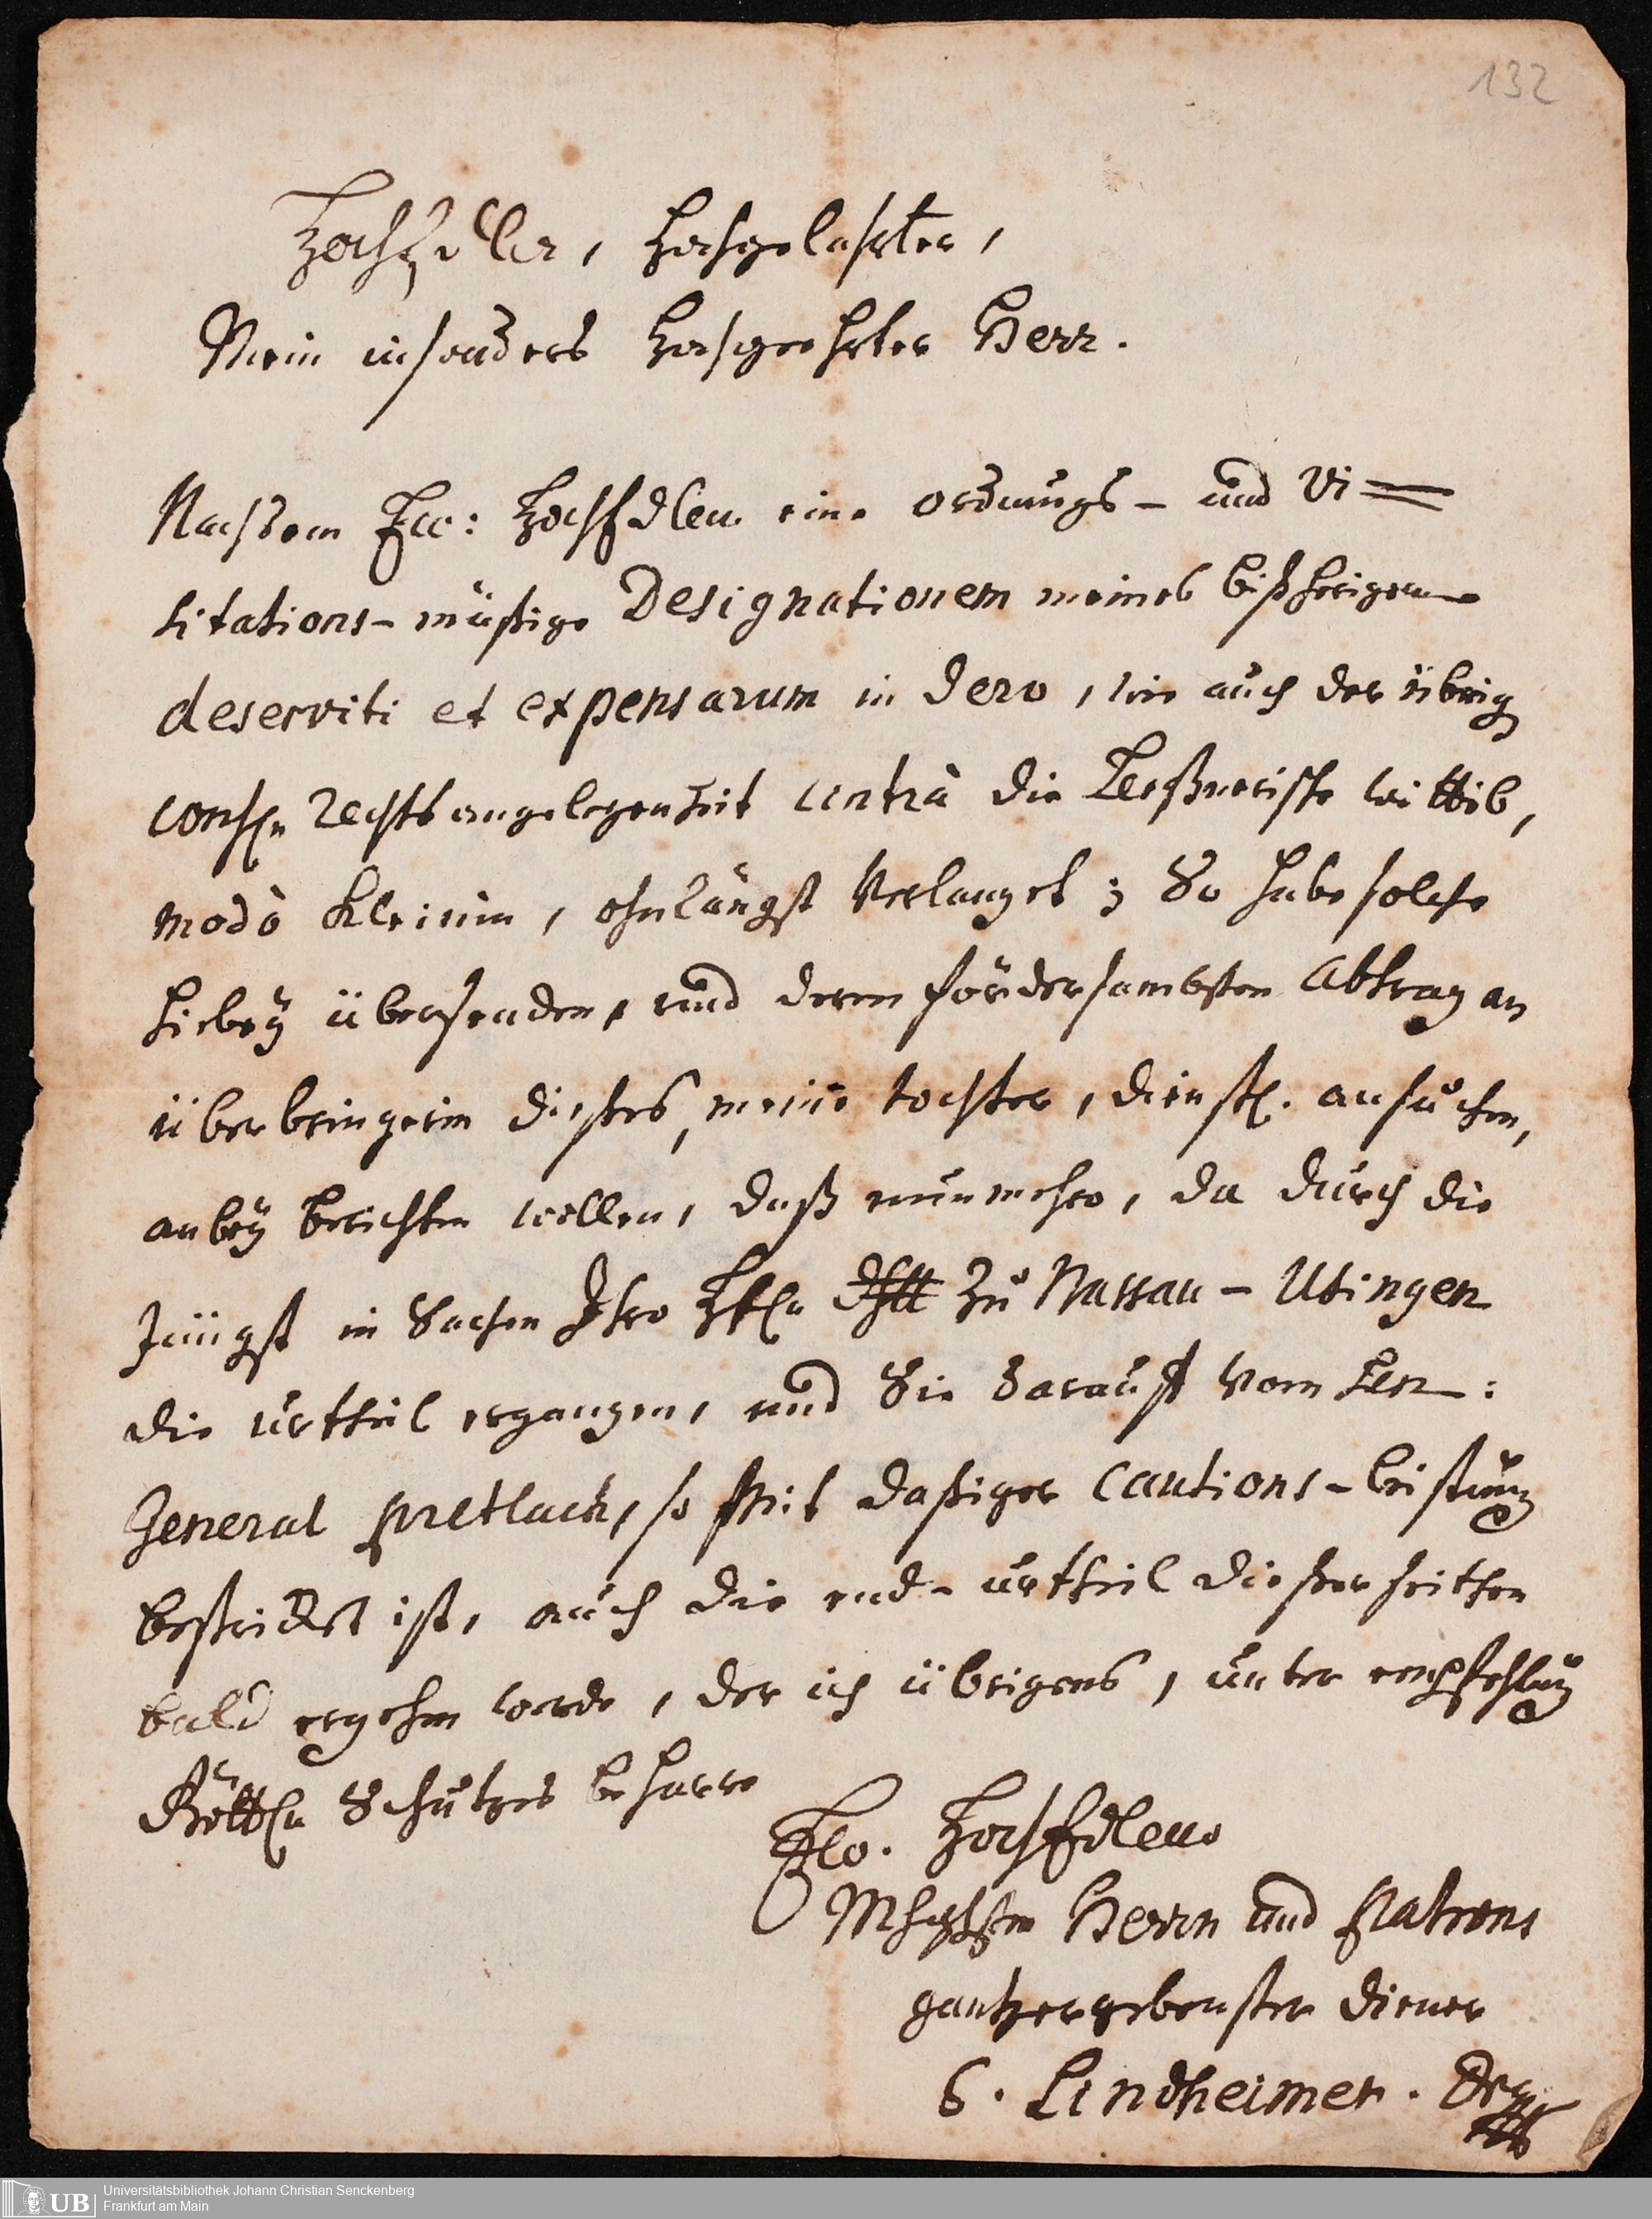 132
HochEdler, Hochgelahrter,
Mein insonders Hochgeehrter Herr.
Nachdem Ew: HochEdlen eine ordnungs- und Vi=
sitations-mäßige Designationem meines bißherigen
deserviti et expensarum in dero, wie auch der übrig
consn Rechtsangelegenheit contrà die Leßnerische wittib,
modò Kleinin, ohnlängst verlanget; So habe solche
hiebey übersenden, und deren fördersambsten Abtrag an
überbringerin dießes, meine tochter, dienstl. ansuchen,
anbey berichten wollen, daß nunmehro, da durch die
Jüngst in Sachen Ihro zu Nassau-Usingen
die urtheil ergangen, und Sie darauf vom
General Pretlack, so mit daßiger Cautions-leistung
ist, auch die end-urtheil dießerseithen
bald ergehen werde, der ich übrigens, unter empfehlung
Göttln Schutzes beharre
Ew. HochEdlen
MhghhE Herrn und Patrons
gantzergebenster Diener
C. Lindheimer. Dr
UB Universitätsbibliothek Johann Christian Senckenberg
Frankfurt am Main